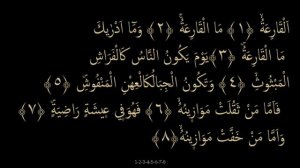 اَلْقَارِعَةُ ﴿١﴾ مَا الْقَارِعَةُ ﴿٢﴾ وَمَا اَدْرٰيكَ
مَا الْقَارِعَةُ ﴿٣﴾ يَوْمَ يَكُونُ النَّاسُ كَالْفَرَاشِ
الْمَبْثُوثِ ﴿٤﴾ وَتَكُونُ الْجِبَالُ كَالْعِهْنِ الْمَنْفُوشِ ﴿٥﴾
فَاَمَّا مَنْ ثَقُلَتْ مَوَازِينُهُ ﴿٦﴾ فَهُوَ فِي عِيشَةٍ رَاضِيَةٍ ﴿٧﴾
وَاَمَّا مَنْ خَفَّتْ مَوَازِينُهُ ﴿٨﴾
1-2-3-4-5-6-7-8